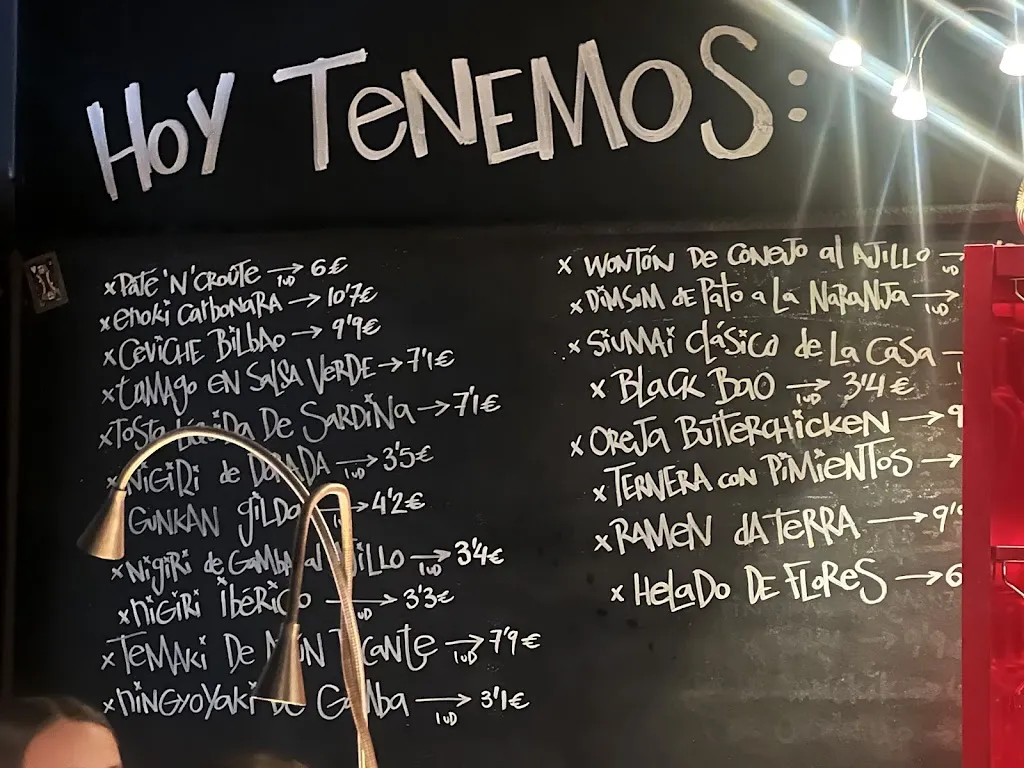 Hoy TeNEMOS:
x Paté 'N' CROÛTE → 6€
1UD
x enoki CaRboNaRA → 10'7€
x CeViCHE BiLbao → 9'9€
x tamago EN SaLSa VeRDE → 7'1€
x TOSTa De SaRDiNa → 7'1€
NiGiRi de DORADA → 3'5€
1UD
GUNKAN giLDa → 4'2€
x NigiRi de GaMBa al AJILLO → 3'4€
1UD
x niGiRi ibéRiCo → 3'3€
UD
x TeMAKi De → 7'9€
1UD
x niNGyoyaKi De GaMba → 3'1€
1UD
x WONTÓN De CONEJO al AJILLO →
UD
x DiMSUM de Pato a La NaRANJa →
1UD
x SiUMAi CLÁSiCo de La CaSa
x BLaCK Bao → 3'4€
1UD
x OReJa BUTTeRCHiCKEN → 9
x TERNERA CON PiMiENTOS →
x RAMEN dA TeRRA → 9'
x HeLaDo DE FLOReS → 6